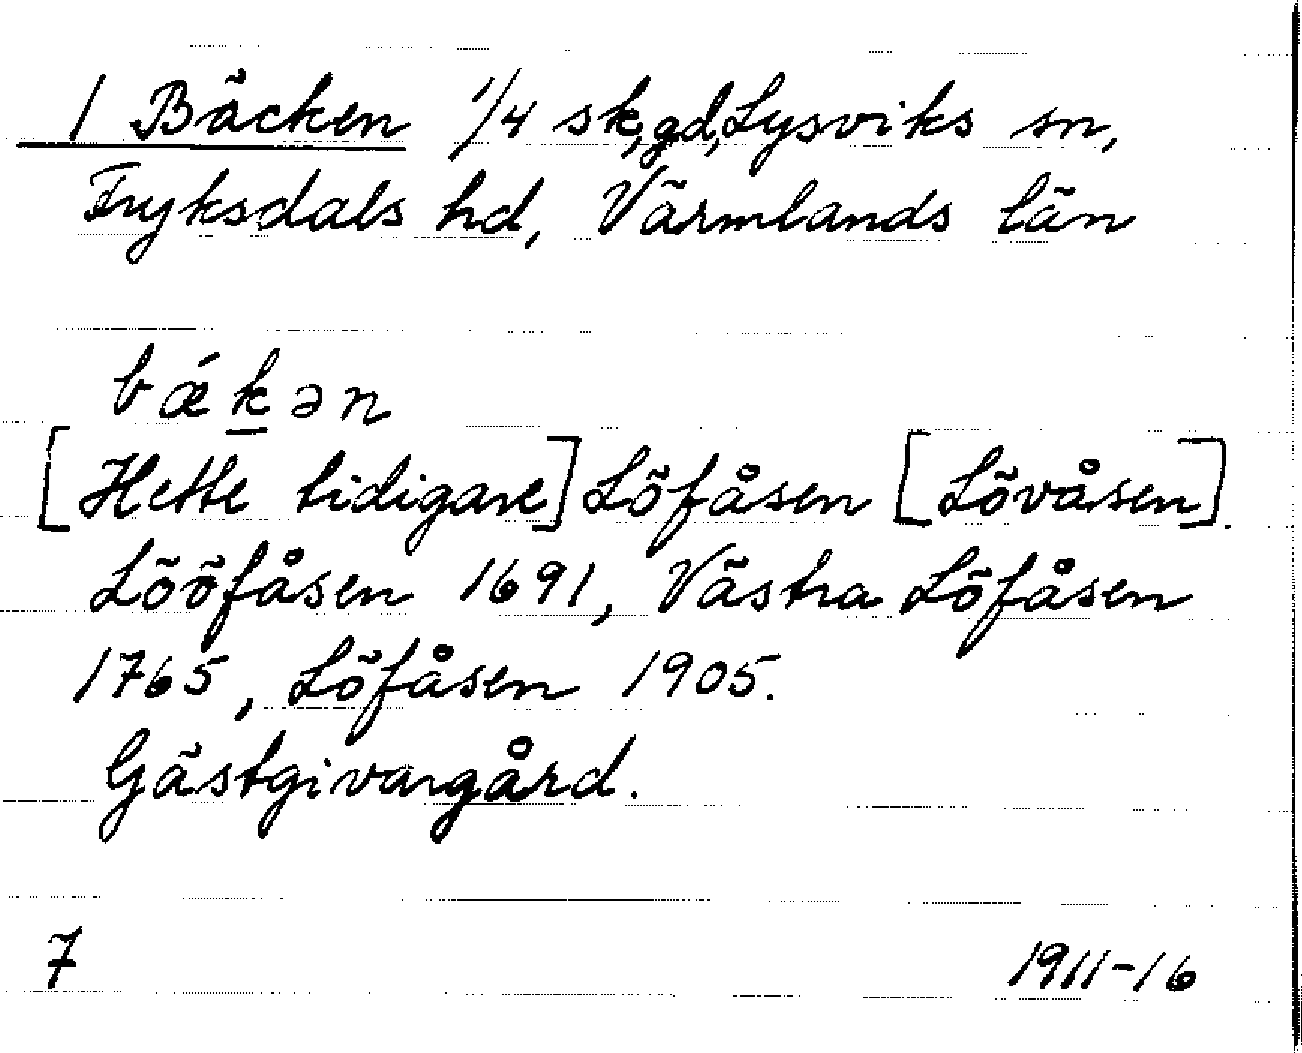 1 Bäcken 1/4 sk, gd, Lysviks sn,
Fryksdals hd, Värmlands län
bǽk̲ən
[Hette tidigare] Löfåsen [Lövåsen].
Lööfåsen 1691, Västra Löfåsen
1765, Löfåsen 1905.
Gästgivargård.
7 1911-16